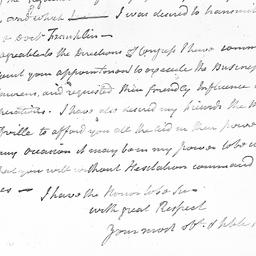 and which I was desired to transmit
Doctr Franklin —
agreeable to the directions of Congress I have comm
your appointment to execute the Business
and requested their friendly Influence
I have also desired my friends the
ville to afford you all the aid in their power
any occasion it may be in my power to be
you will without Hesitation command
es — I have the Honor to be Sir
with great Respect
Your most Obt. & hble